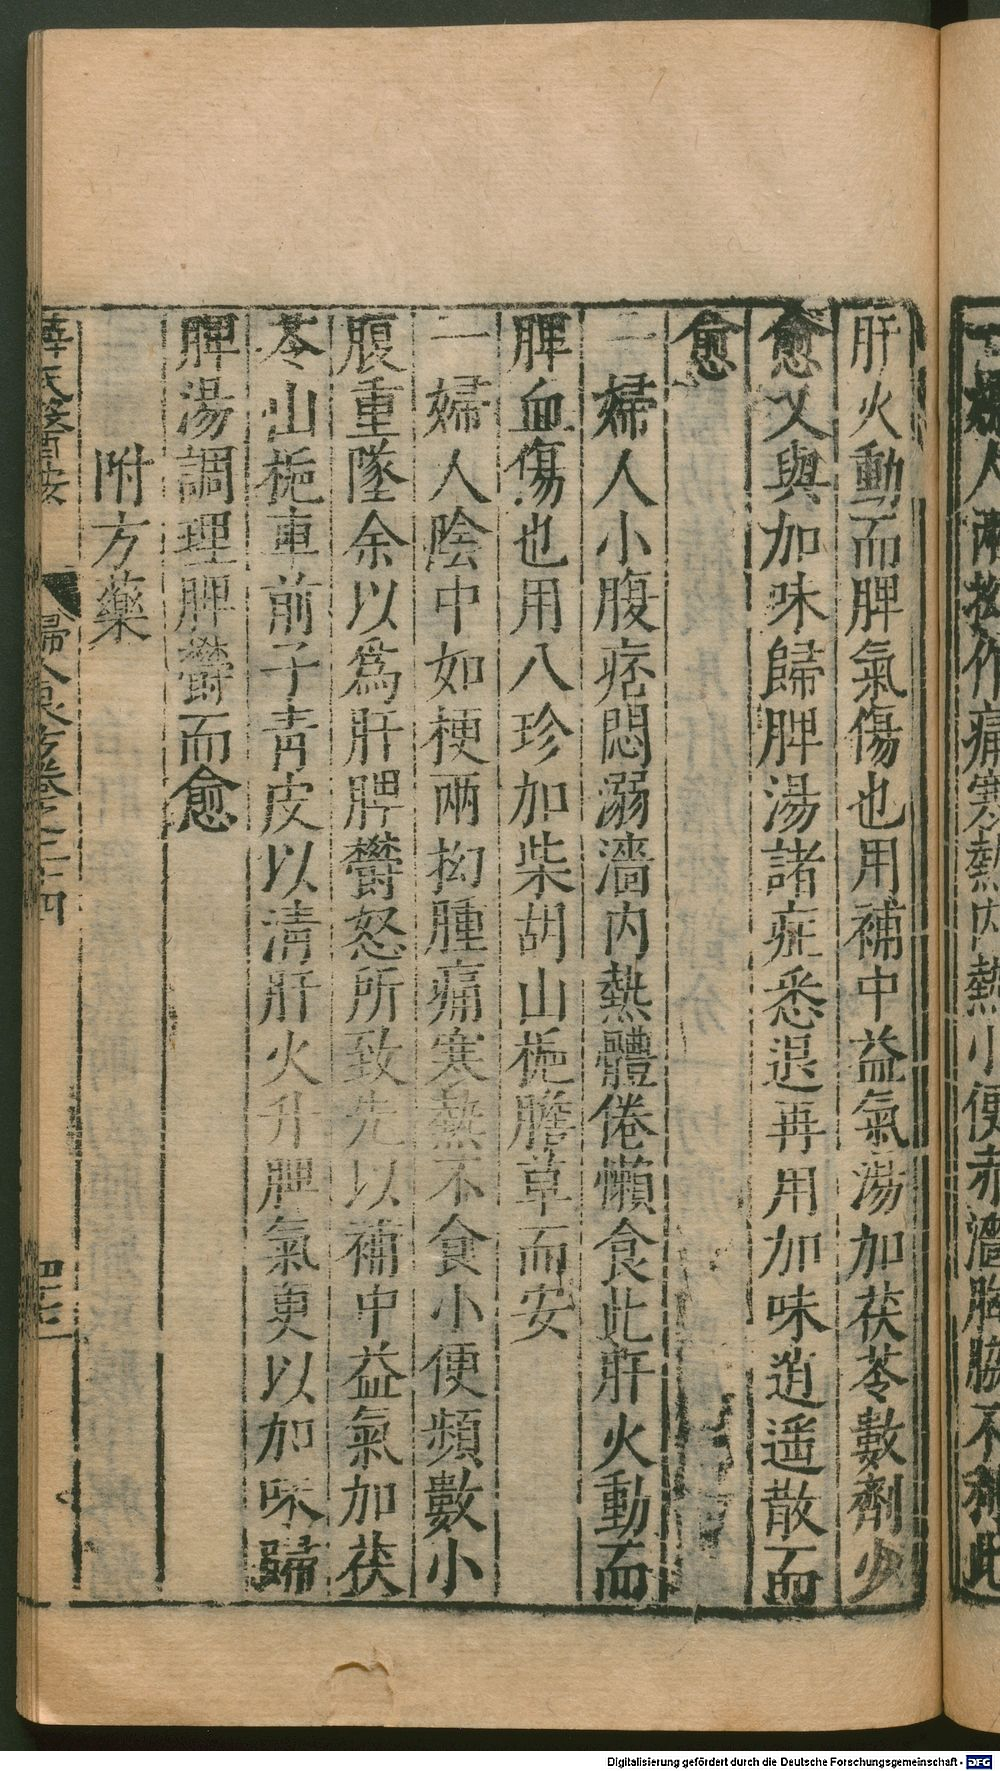 一婦人兩拗作痛寒熱內熱小便赤澁胸脇不利此
肝火動而脾氣傷也用補中益氣湯加茯苓數劑少
愈又與加味歸脾湯諸症悉退再用加味逍遥散而
愈
一婦人小腹痞悶溺濇内熱體倦懶食此肝火動而
脾血傷也用八珍加柴胡山梔膽草而安
一婦人陰中如梗兩拗腫痛寒熱不食小便頻數小
腹重墜余以爲肝脾欝怒所致先以補中益氣加茯
苓山梔車前子青皮以清肝火升脾氣更以加味歸
脾湯調理脾欝而愈
附方藥
薛氏醫按
婦人良方卷之二十四
Digitalisierung gefördert durch die Deutsche Forschungsgemeinschaft - DFG